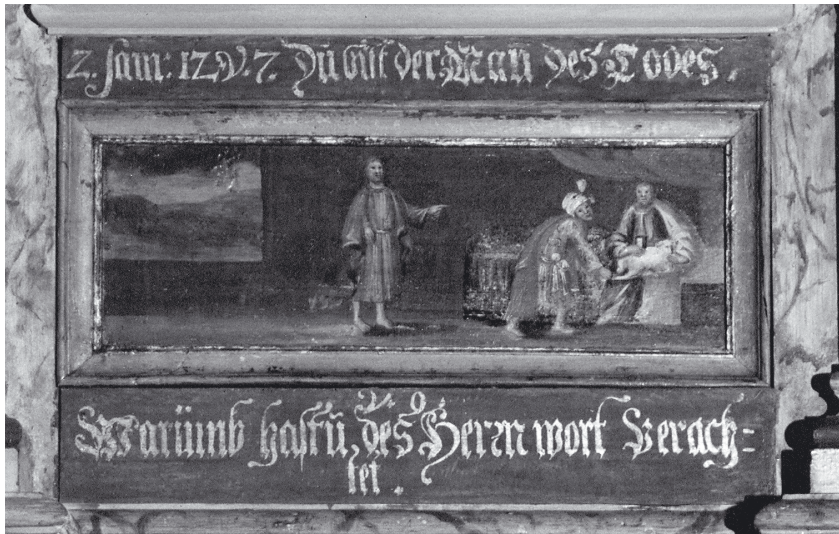 2. Sam: 12 V. 7. Du bist der Man̄ des Todes.
V. 9.
Warümb hastu, des Herrn wort Verach=
tet.